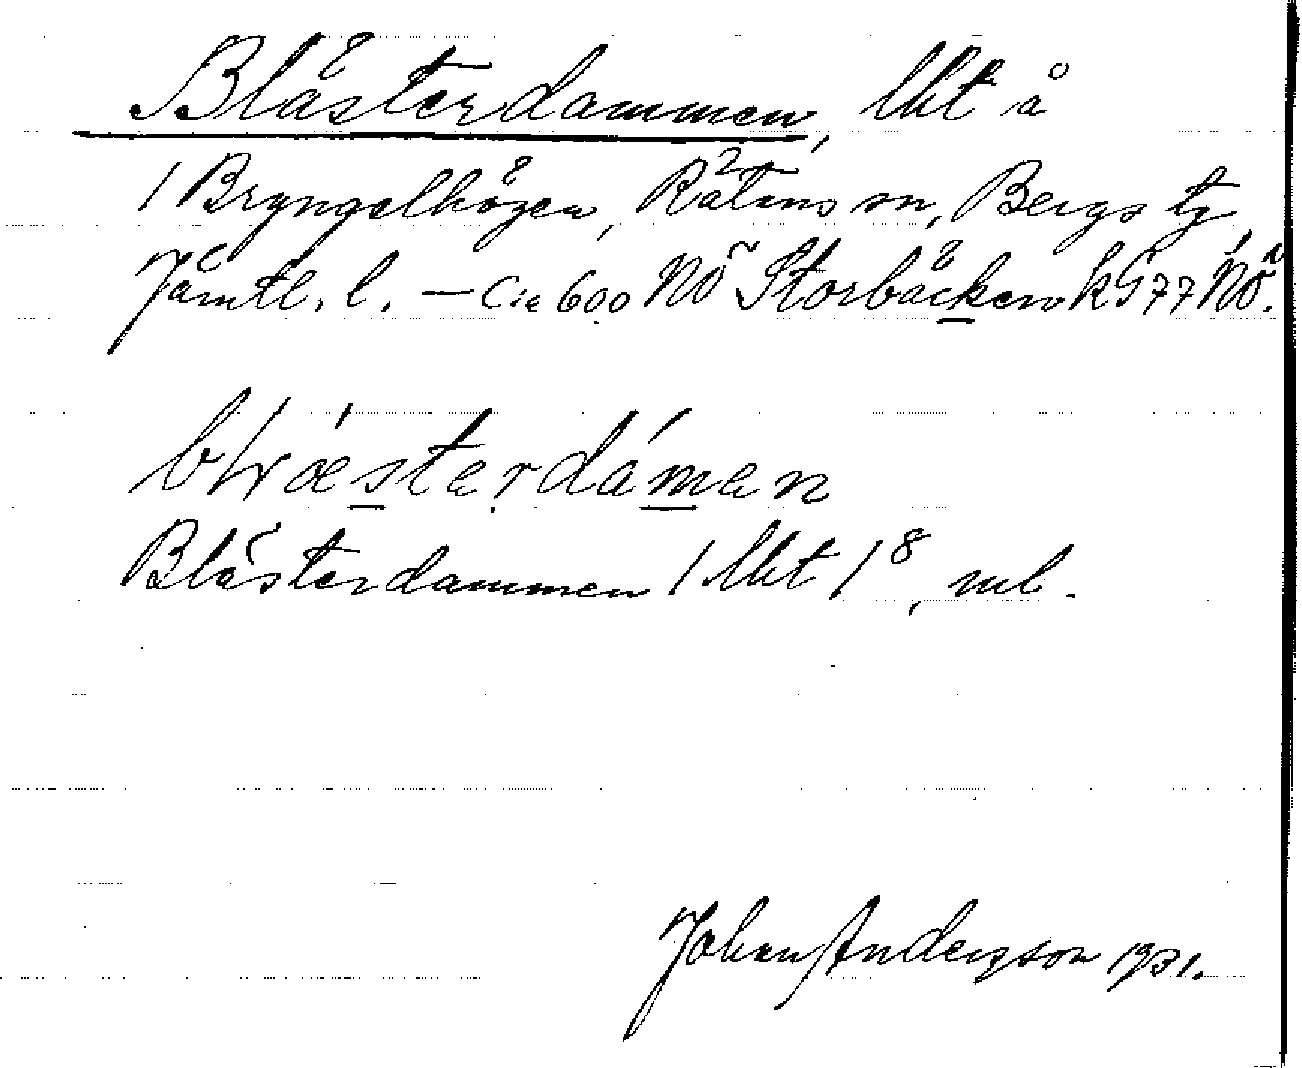 Blästerdammen, lht å
1 Bryngelhögen, Rätans sn, Bergs tg
Jämtl. l. – Ca 600 NÖ Storbäcken k G 77 NÖ.
Blästerdammen 1 lht 1 8, ml.
Johan Andersson 1931.